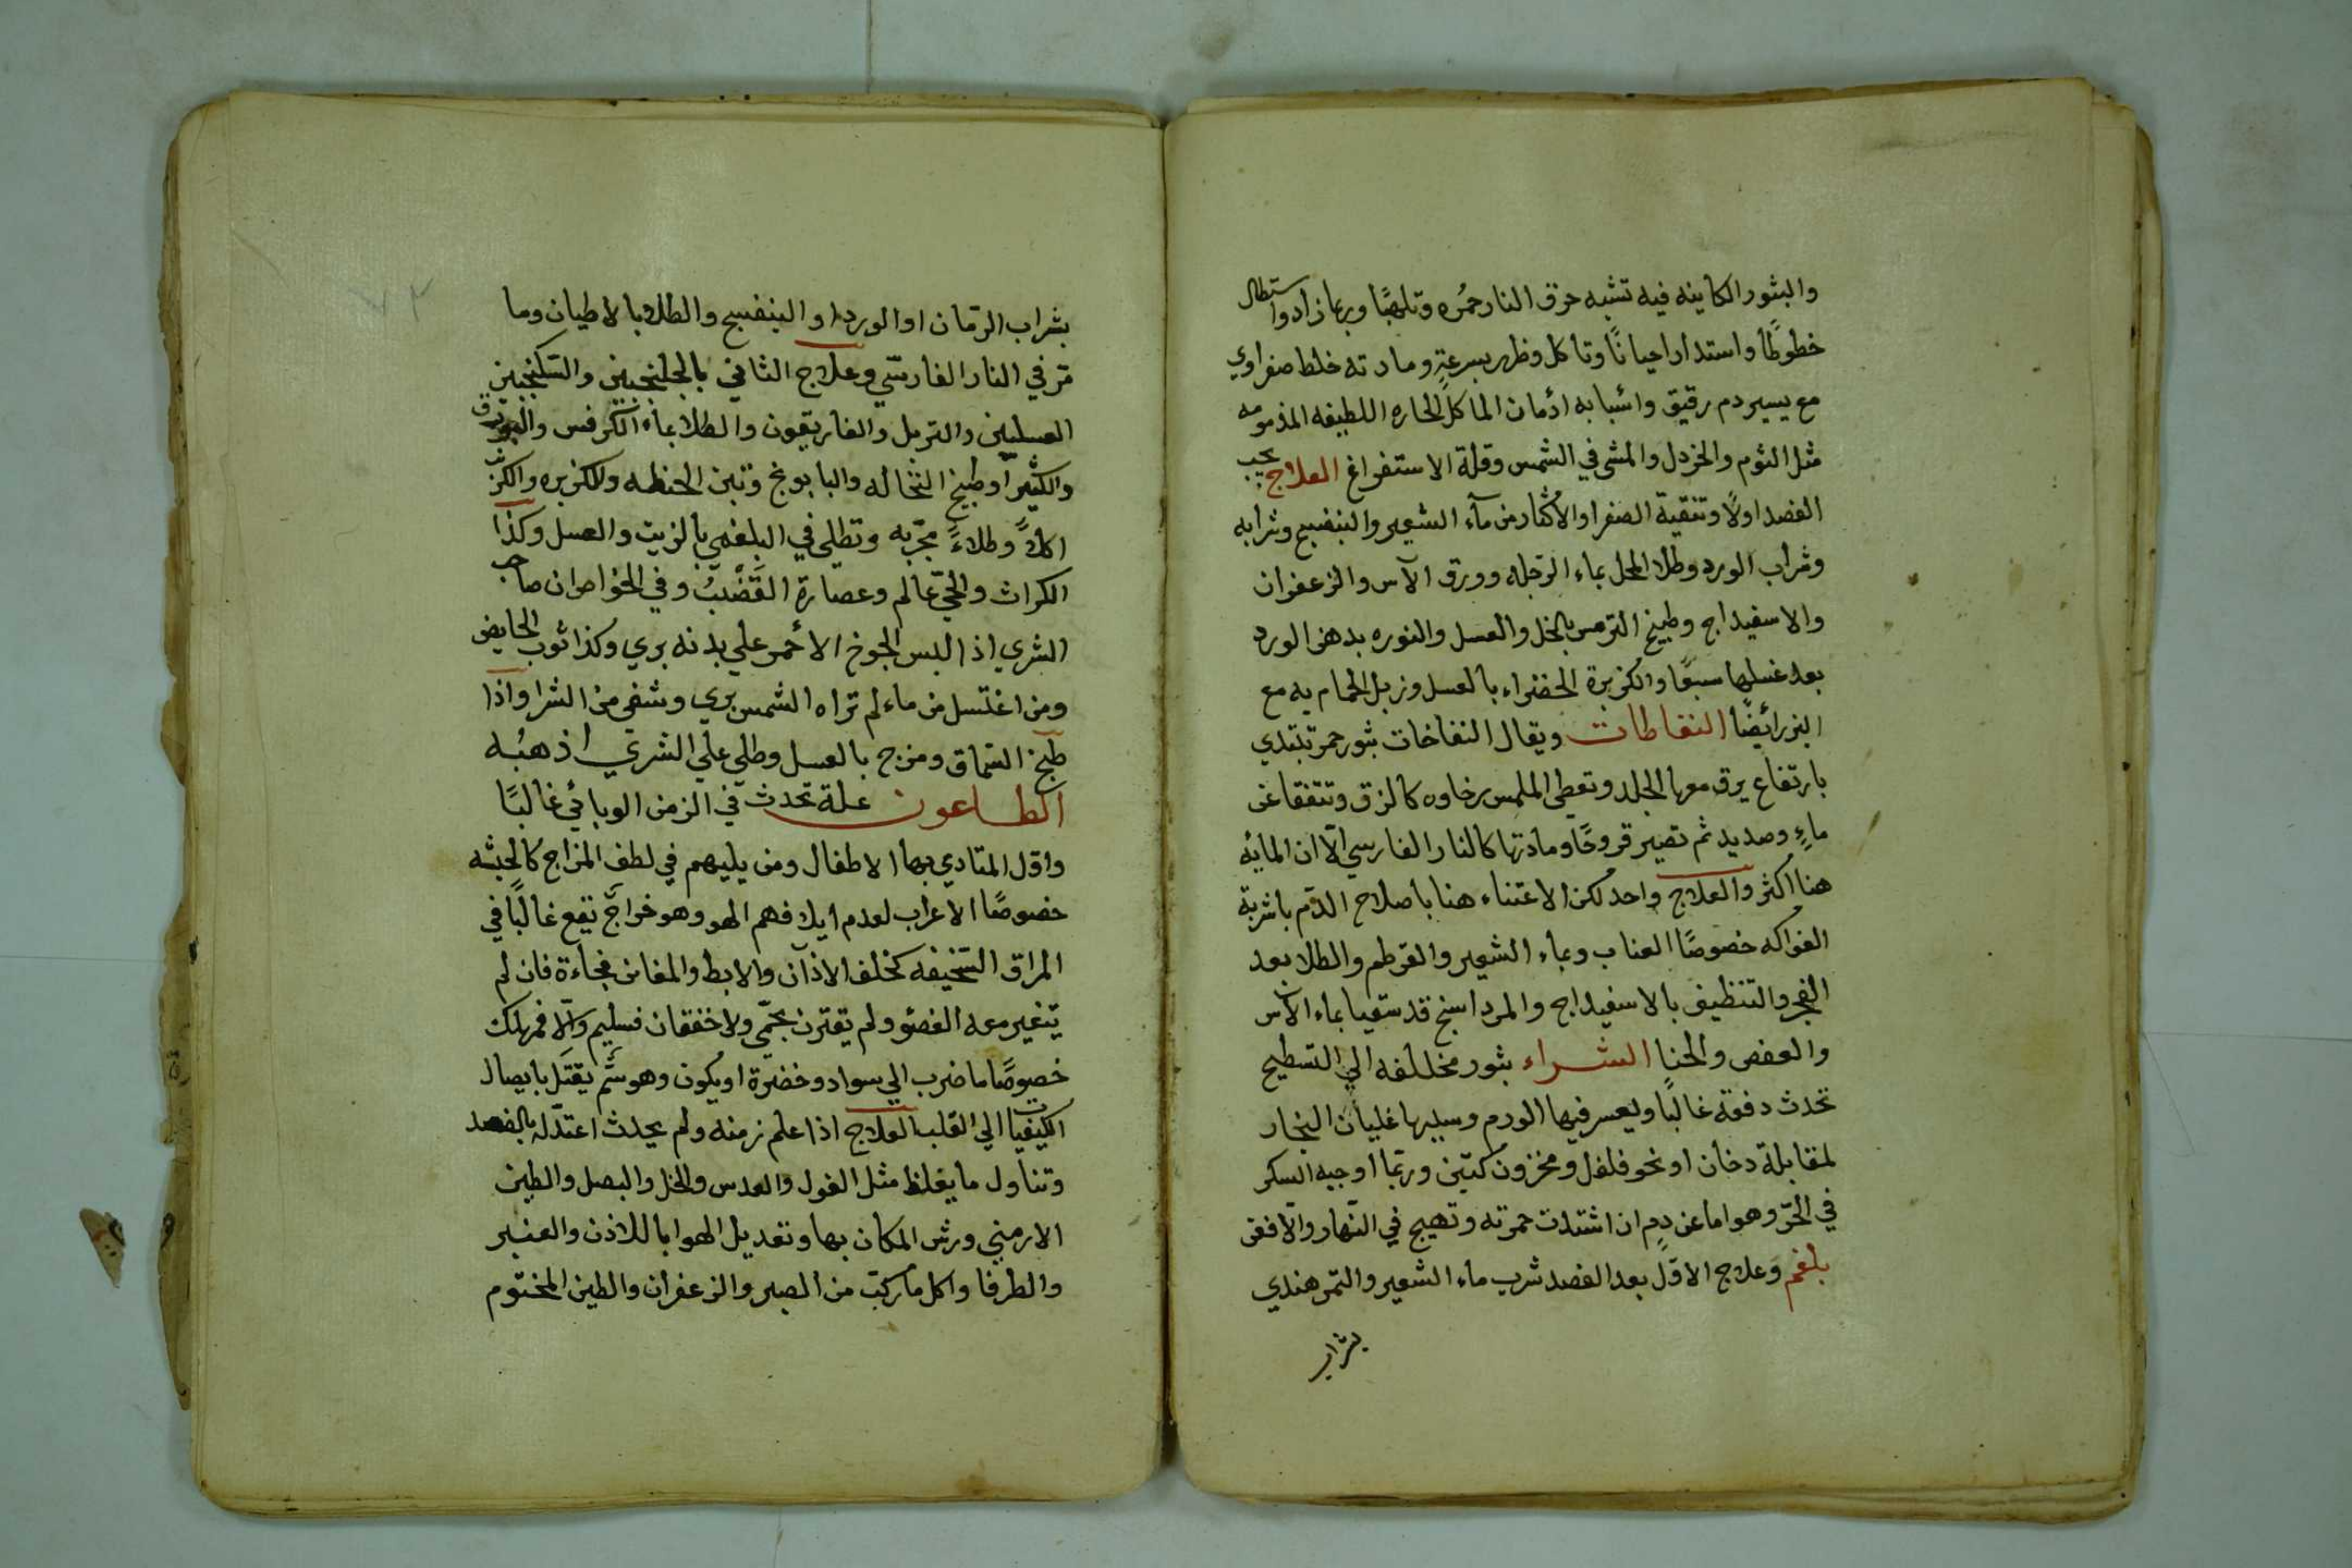 والبثور الكاينه فيه تشبه حرق النار حمُره وتلهبًا وربما زادوا ستطال
خطوطًا واستدار احيانًا وتاكل وظهر بسرعةٍ ومادته خلط صفراوي
مع يسير دم رقيق واسٔبابه ادٔمان الماكل الحاره اللطيفه المذمومه
مثل الثوم والخردل والمشي في الشمس وقلة الاستفراغ العلاج يجب
الفصد اولاً وتنقية الصفرا والاكثار من مآء الشعير والبنفسج وشرابه
وشراب الورد وطلا المحل بماء الرجله وورق الآس والزعفران
والاسفيداج وطبيخ الترمس بالخل والعسل والنوره بدهن الورد
بعد غسلها سبعًا والكزبرة الخضراء بالعسل وزبل الحمام به مع
البزر ائضًا النفاطات ويقال النفاخات بثور حمر تبتدي
بارتفاع يرق معها الجلد وتعطي الملمس رخاوه كالزق وتتفقا عن
ماءٍ وصديد ثم تصير قروحًا ومادتها كالنار الفارسي الّا ان المائه
هنا اكثر والعلاج واحد لكن الاعتناء هنا باصلاح الدّم باشربة
الفواكه خصوصًا العناب وبماء الشعير والقرطم والطلا بعد
الفجر والتنظيف بالاسفيداج والمرداسنج قد سقيا بماء الآس
والعفص والحنا الشراء بثور مخللفه الي التسطيح
تحدث دفعة غالبًا ويعسر فيها الورم وسببها غليان البخار
لمقابلة دخان او نحو فلفل ومخزون كتين وربّما اوجبه السكر
في الحرّ وهو اما عن دمٍ ان اشتدت حمرته وتهيج في النّهار والّا فعن
بلغم وعلاج الاوّل بعد الفصد شرب ماء الشعير والتمر هندي
بشراب
بشراب الرّمان او الورد او البنفسج والطلا بالاطيان وما
مّر في النار الفارسّي وعلاج الثاني بالجلنجبين والسّكنجبين
العسليين والتربل والغاريقون والطلا بماء الكرفس والبورق
والكثيرا وطبيخ النخاله والبابونج وتبن الحنطه والكزبره والكرنب
اكلاً وطلاءً مجرّبه وتطلي في البلغمي بالزيت والعسل وكذا
الكراث والحيّ عالم وعصارة القَضْبُ وفي الخواص ان صاحب
الشري اذا لبس الجوخ الاحٔمر علي بدنه بري وكذا ثوب الحايض
ومن اغتسل من ماء لم تراه الشمس بري وشفي من الشرا واذا
طبخ السّماق ومزج بالعسل وطلي علي الشري اذهبُه
الطاعون علة تحدث في الزمن الوبائي غالبًا
واوّل المتادي بها الاطفال ومن يليهم في لطف المزاج كالحبشه
خصوصًا الاعراب لعدم ايلافهم الهو وهو خراجٌ يقع غالبًا في
المراق السّخيفه كخلف الاذآن والابط والمغابن فجاءة فان لم
يتغير معه العضو ولم يقترن بحمّي ولا خفقان فسليم والّا فمهلك
خصوصًا ما ضرب الي سواد وخضرة او يكون وهو سٌّم يقتل بايصال
الكيفيات الي القلب العلاج اذا علم زمنه ولم يحدث اعتدّ له بالفصد
وتناول ما يغلظ مثل الفول والعدس والخل والبصل والطين
الارمني ورش المكان بها وتعديل الهوا باللاذن والعنبر
والطرفا واكل ما ركبّ من الصبر والزعفران والطين المختوم